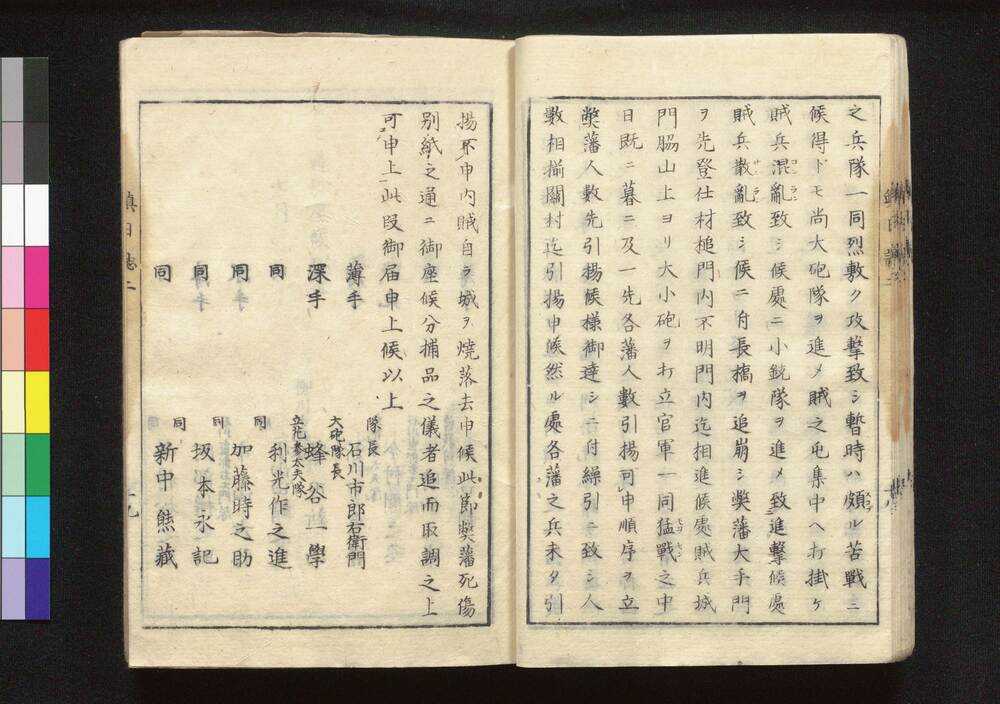 之兵隊一同烈敷ク攻撃致シ暫時ハ頗ル苦戰ニ
候得ドモ尚大砲隊ヲ進メ賊之屯集中ヘ打掛ケ
賊兵混亂致シ候處ニ小銃隊ヲ進メ致進撃候處
賊兵散亂致シ候ニ付長橋ヲ追崩シ獘藩大手門
ヲ先登仕材槌門内不明門内迄相進候處賊兵城
門脇山上ヨリ大小砲ヲ打立官軍一同猛戰之中
日既ニ暮ニ及一先各藩人數引揚可申順序ヲ立
獘藩人數先引揚候樣御達シニ付繰引ニ致シ人
數相揃關村迄引揚申候然ル處各藩之兵未タ引
揚不申内賊自ラ城ヲ燒落去申候此節獘藩死傷
別紙之通ニ御座候分捕品之儀者追而取調之上
可申上此段御届申上候以上
薄手 隊長 石川市郎右衛門
深手 大砲隊長 蜂谷一學
同 立花參太夫隊 利光作之進
同 同 加藤時之助
同 同 坂本永記
同 同 新中熊藏
鎮日誌二